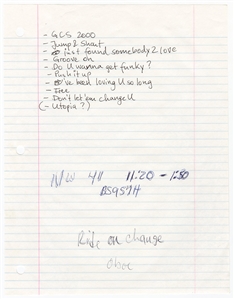 - GCS 2000
- Jump 2 Shout
- just found somebody 2 love
- Groove on
- Do U wanna get funky?
- Push it up
- I've been loving U so long
- Free
- Don't let 'em change U
(- Utopia?)
11:20 - 1:50
Ride on change